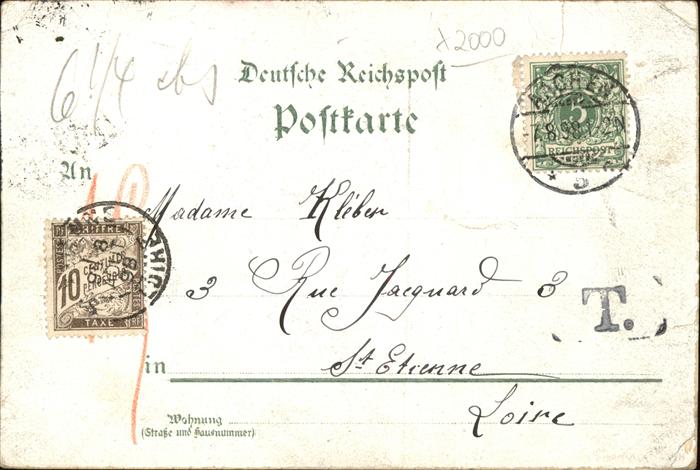 x2000
6 1/4
Deutsche Reichspost
Postkarte
AACHEN
5
REICHSPOST
* 5
An
10
Madame Kléber
CHIFFRE
10
CENTIMES
À PERCEVOIR
TAXE
3 Rue Jacquard 3
T.
in St Etienne
Loire
Wohnung
(Straße und Hausnummer)